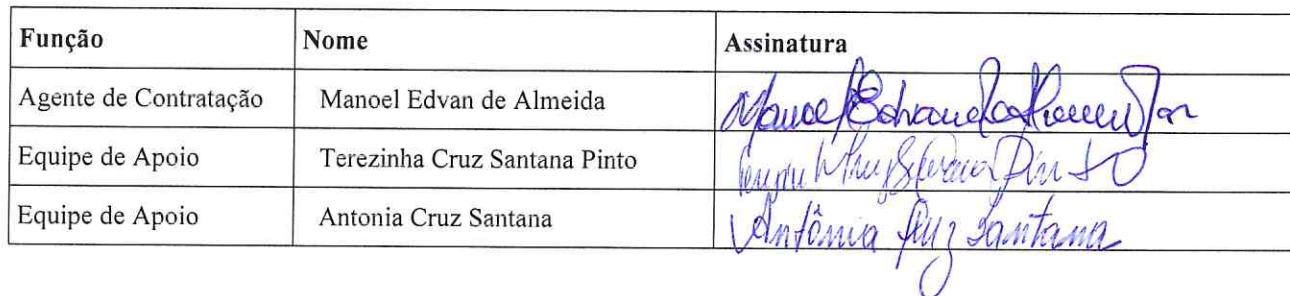 Função Nome Assinatura
Agente de Contratação Manoel Edvan de Almeida Manoel Edvan de Almeida
Equipe de Apoio Terezinha Cruz Santana Pinto Cruz Santana Pinto
Equipe de Apoio Antonia Cruz Santana Antônia Cruz Santana